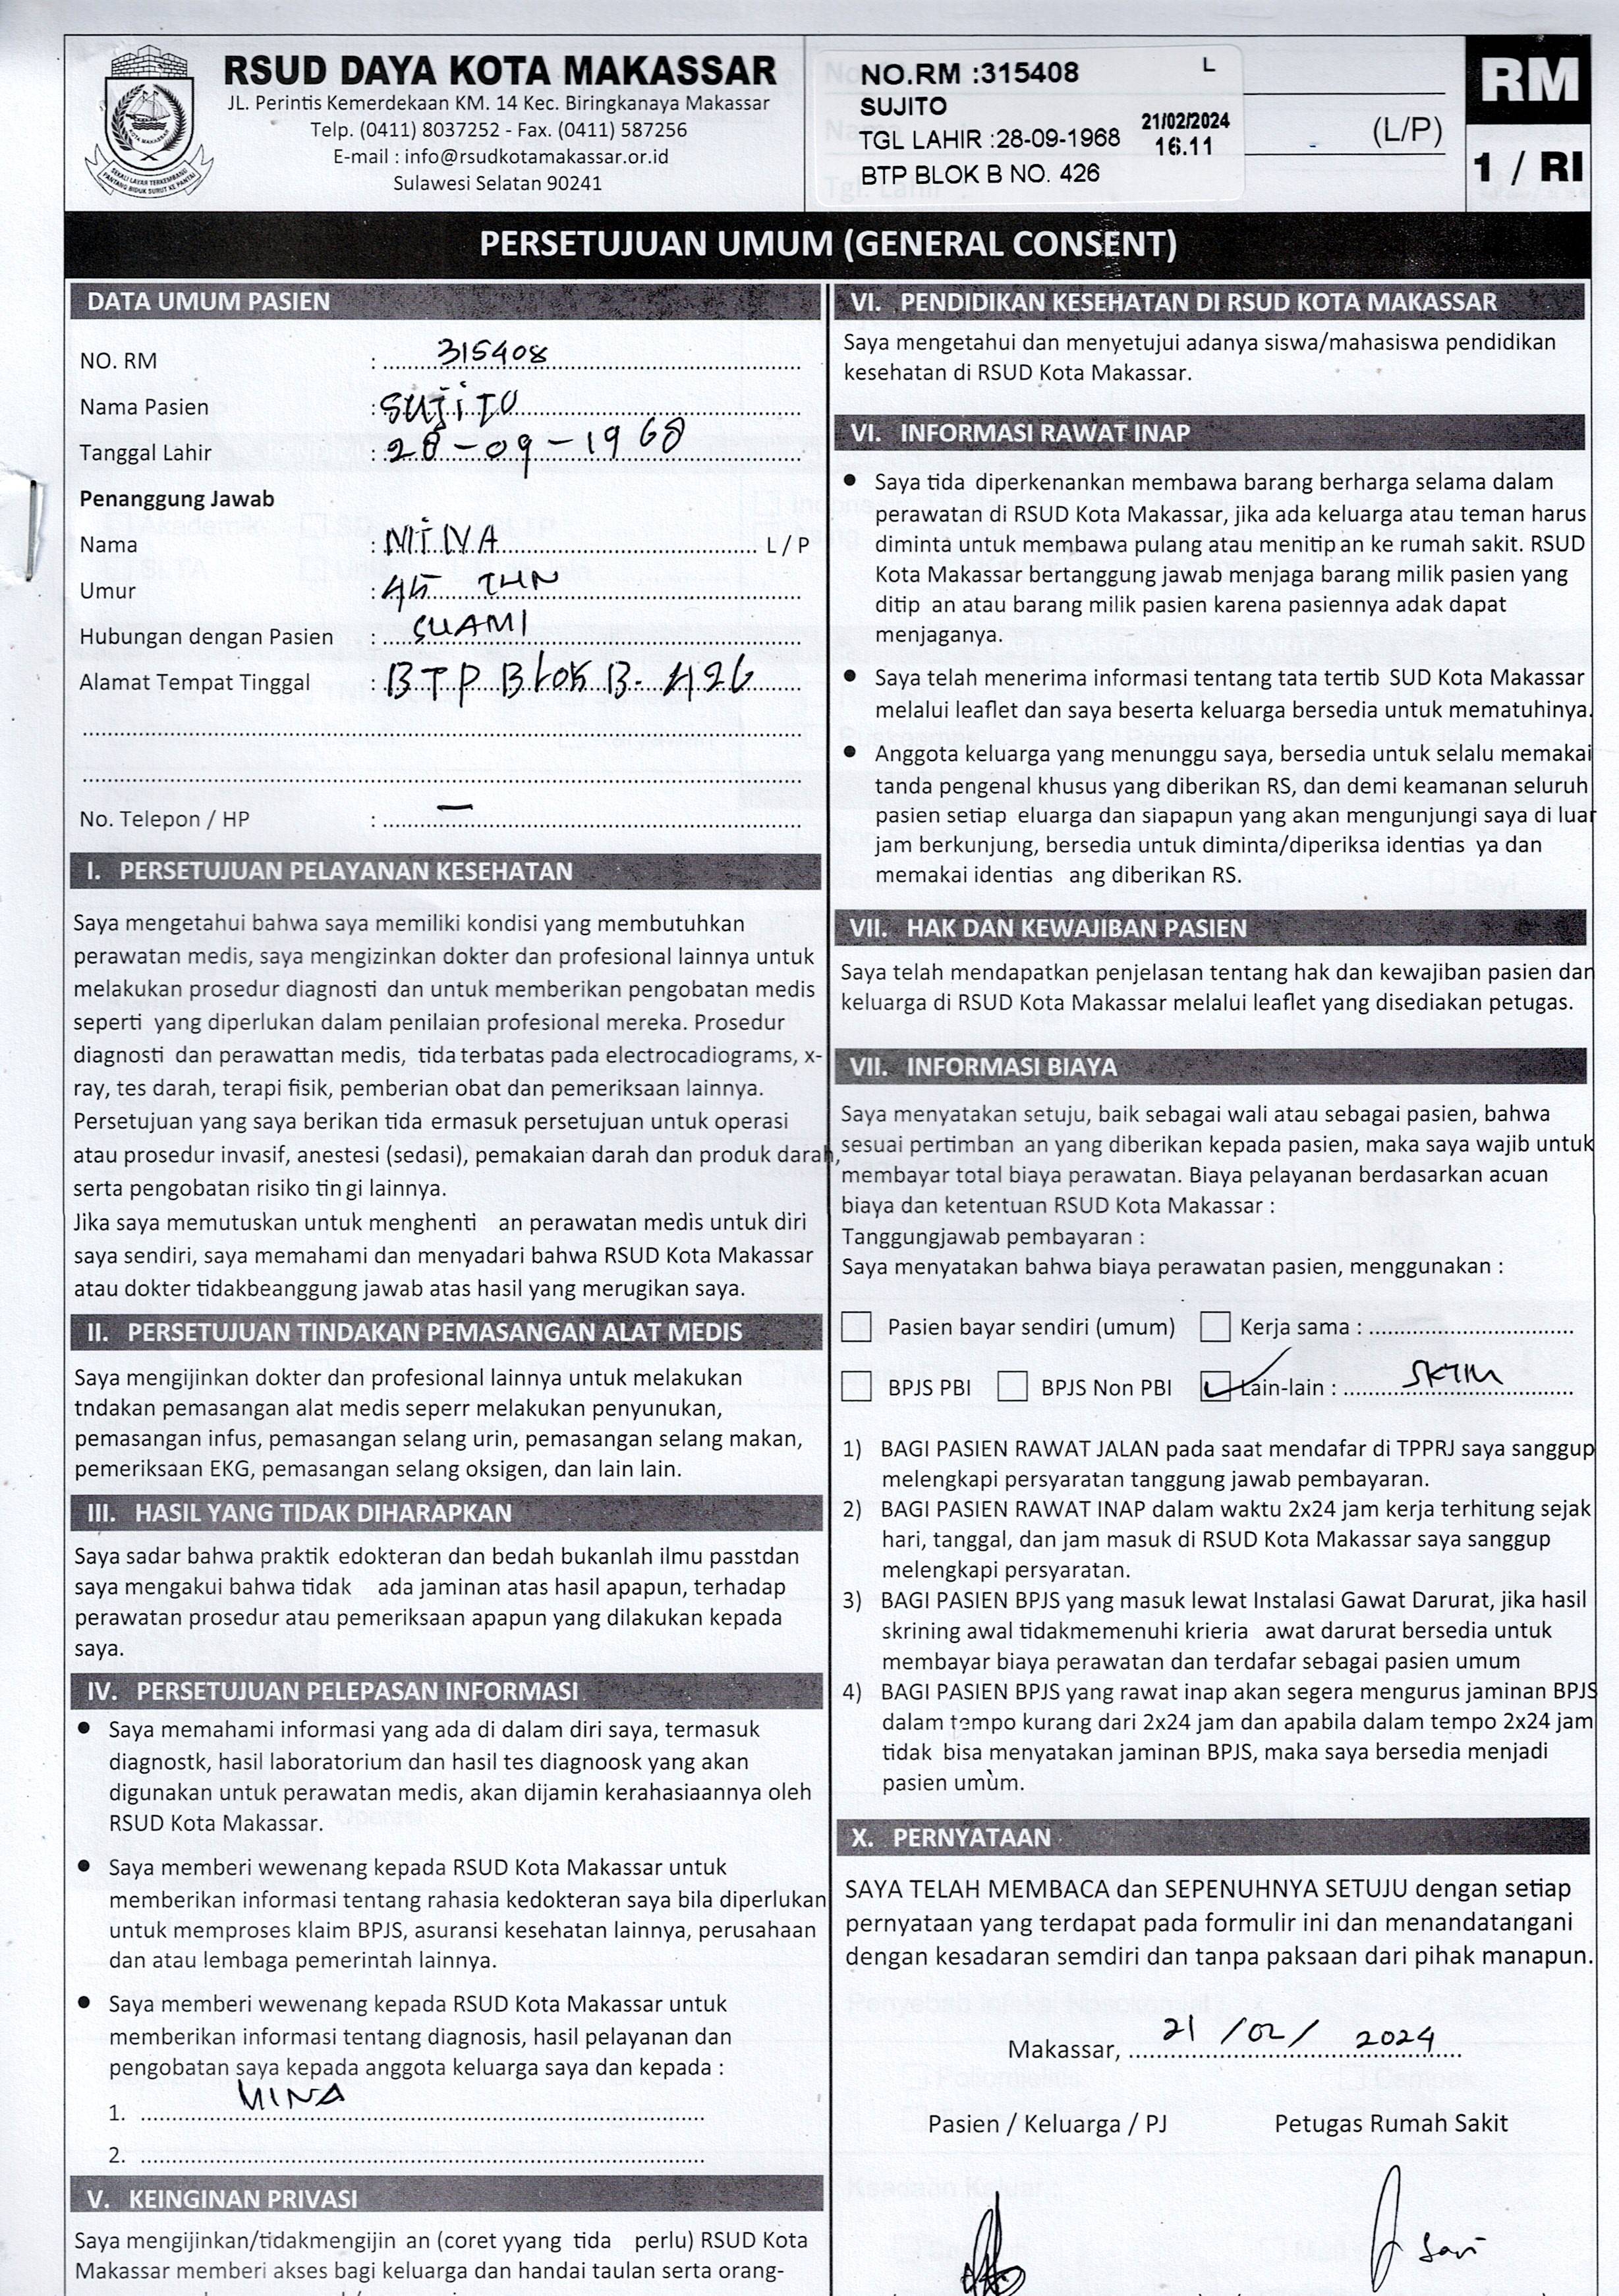 RSUD DAYA KOTA MAKASSAR
JL. Perintis Kemerdekaan KM. 14 Kec. Biringkanaya Makassar
Telp. (0411) 8037252 - Fax. (0411) 587256
E-mail : info@rsudkotamakassar.or.id
Sulawesi Selatan 90241
NO.RM :315408 L
SUJITO
TGL LAHIR :28-09-1968
21/02/2024
16.11
BTP BLOK B NO. 426
(L/P)
RM
1 / RI
PERSETUJUAN UMUM (GENERAL CONSENT)
DATA UMUM PASIEN
NO. RM : 315408
Nama Pasien : SUJITO
Tanggal Lahir : 28-09-1968
Penanggung Jawab
Nama : NINA L / P
Umur : 45 THN
Hubungan dengan Pasien : SUAMI
Alamat Tempat Tinggal : BTP Blok B. 426
No. Telepon / HP : —
I. PERSETUJUAN PELAYANAN KESEHATAN
Saya mengetahui bahwa saya memiliki kondisi yang membutuhkan
perawatan medis, saya mengizinkan dokter dan profesional lainnya untuk
melakukan prosedur diagnosti dan untuk memberikan pengobatan medis
seperti yang diperlukan dalam penilaian profesional mereka. Prosedur
diagnosti dan perawattan medis, tida terbatas pada electrocadiograms, x-
ray, tes darah, terapi fisik, pemberian obat dan pemeriksaan lainnya.
Persetujuan yang saya berikan tida ermasuk persetujuan untuk operasi
atau prosedur invasif, anestesi (sedasi), pemakaian darah dan produk darah,
serta pengobatan risiko tin gi lainnya.
Jika saya memutuskan untuk menghenti an perawatan medis untuk diri
saya sendiri, saya memahami dan menyadari bahwa RSUD Kota Makassar
atau dokter tidakbeanggung jawab atas hasil yang merugikan saya.
II. PERSETUJUAN TINDAKAN PEMASANGAN ALAT MEDIS
Saya mengijinkan dokter dan profesional lainnya untuk melakukan
tndakan pemasangan alat medis seperr melakukan penyunukan,
pemasangan infus, pemasangan selang urin, pemasangan selang makan,
pemeriksaan EKG, pemasangan selang oksigen, dan lain lain.
III. HASIL YANG TIDAK DIHARAPKAN
Saya sadar bahwa praktik edokteran dan bedah bukanlah ilmu passtdan
saya mengakui bahwa tidak ada jaminan atas hasil apapun, terhadap
perawatan prosedur atau pemeriksaan apapun yang dilakukan kepada
saya.
IV. PERSETUJUAN PELEPASAN INFORMASI
● Saya memahami informasi yang ada di dalam diri saya, termasuk
diagnostk, hasil laboratorium dan hasil tes diagnoosk yang akan
digunakan untuk perawatan medis, akan dijamin kerahasiaannya oleh
RSUD Kota Makassar.
● Saya memberi wewenang kepada RSUD Kota Makassar untuk
memberikan informasi tentang rahasia kedokteran saya bila diperlukan
untuk memproses klaim BPJS, asuransi kesehatan lainnya, perusahaan
dan atau lembaga pemerintah lainnya.
● Saya memberi wewenang kepada RSUD Kota Makassar untuk
memberikan informasi tentang diagnosis, hasil pelayanan dan
pengobatan saya kepada anggota keluarga saya dan kepada :
1. NINA
2.
V. KEINGINAN PRIVASI
Saya mengijinkan/tidakmengijin an (coret yyang tida perlu) RSUD Kota
Makassar memberi akses bagi keluarga dan handai taulan serta orang-
VI. PENDIDIKAN KESEHATAN DI RSUD KOTA MAKASSAR
Saya mengetahui dan menyetujui adanya siswa/mahasiswa pendidikan
kesehatan di RSUD Kota Makassar.
VI. INFORMASI RAWAT INAP
● Saya tida diperkenankan membawa barang berharga selama dalam
perawatan di RSUD Kota Makassar, jika ada keluarga atau teman harus
diminta untuk membawa pulang atau menitip an ke rumah sakit. RSUD
Kota Makassar bertanggung jawab menjaga barang milik pasien yang
ditip an atau barang milik pasien karena pasiennya adak dapat
menjaganya.
● Saya telah menerima informasi tentang tata tertib SUD Kota Makassar
melalui leaflet dan saya beserta keluarga bersedia untuk mematuhinya.
● Anggota keluarga yang menunggu saya, bersedia untuk selalu memakai
tanda pengenal khusus yang diberikan RS, dan demi keamanan seluruh
pasien setiap eluarga dan siapapun yang akan mengunjungi saya di luar
jam berkunjung, bersedia untuk diminta/diperiksa identias ya dan
memakai identias ang diberikan RS.
VII. HAK DAN KEWAJIBAN PASIEN
Saya telah mendapatkan penjelasan tentang hak dan kewajiban pasien dan
keluarga di RSUD Kota Makassar melalui leaflet yang disediakan petugas.
VII. INFORMASI BIAYA
Saya menyatakan setuju, baik sebagai wali atau sebagai pasien, bahwa
sesuai pertimban an yang diberikan kepada pasien, maka saya wajib untuk
membayar total biaya perawatan. Biaya pelayanan berdasarkan acuan
biaya dan ketentuan RSUD Kota Makassar :
Tanggungjawab pembayaran :
Saya menyatakan bahwa biaya perawatan pasien, menggunakan :
Pasien bayar sendiri (umum) Kerja sama :
BPJS PBI BPJS Non PBI Lain-lain : SKTM
1) BAGI PASIEN RAWAT JALAN pada saat mendafar di TPPRJ saya sanggup
melengkapi persyaratan tanggung jawab pembayaran.
2) BAGI PASIEN RAWAT INAP dalam waktu 2x24 jam kerja terhitung sejak
hari, tanggal, dan jam masuk di RSUD Kota Makassar saya sanggup
melengkapi persyaratan.
3) BAGI PASIEN BPJS yang masuk lewat Instalasi Gawat Darurat, jika hasil
skrining awal tidakmemenuhi krieria awat darurat bersedia untuk
membayar biaya perawatan dan terdafar sebagai pasien umum
4) BAGI PASIEN BPJS yang rawat inap akan segera mengurus jaminan BPJS
dalam tempo kurang dari 2x24 jam dan apabila dalam tempo 2x24 jam
tidak bisa menyatakan jaminan BPJS, maka saya bersedia menjadi
pasien umum.
X. PERNYATAAN
SAYA TELAH MEMBACA dan SEPENUHNYA SETUJU dengan setiap
pernyataan yang terdapat pada formulir ini dan menandatangani
dengan kesadaran semdiri dan tanpa paksaan dari pihak manapun.
Makassar, 21/02/2024
Pasien / Keluarga / PJ Petugas Rumah Sakit
Sari